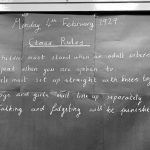 Monday 4th February 1929
Class Rules
children must stand when an adult enters
speak when you are spoken to
must sit up straight with knees
boys and girls must line up separately
talking and fidgeting will be punished